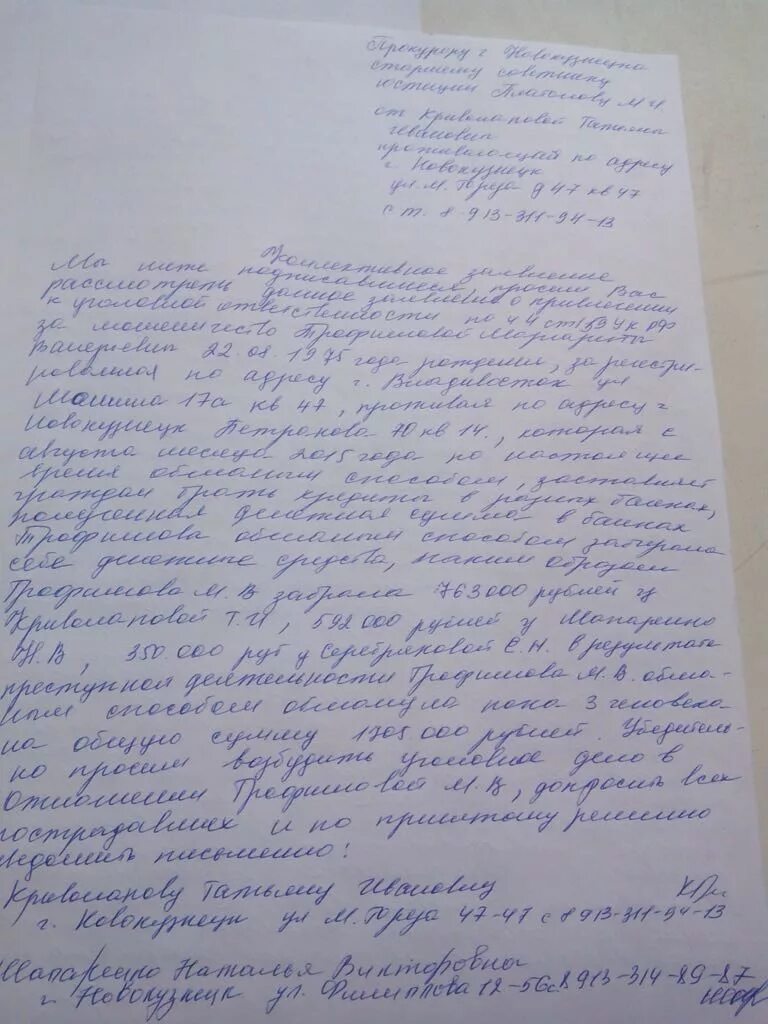 Прокурору г Новокузнецка
старшему советнику
юстиции Платонову М.И.
от Криволаповой Татьяны
Ивановны
проживающей по адресу
г Новокузнецк
ул. М. Тореза д 47 кв 47
с т. 8 913-311-94-13
Коллективное заявление
Мы ниже подписавшиеся, просим Вас
рассмотреть данное заявление о привлечении
к уголовной ответственности по ч 4 ст 159 УК РФ
за мошеничество Трофимовой Маргариты
Валерьевны 22.08.1975 года рождения, зарегистри-
рованная по адресу г. Владивосток ул
17а кв 47, проживая по адресу г
Новокузнецк Петракова 70 кв 14., которая с
августа месяца 2015 года по настоящее
время обманым способом, заставляет
граждан брать кредиты в разных банках,
полученная денежная сумма в банках
Трофимова обманым способом забирала
себе денежные средства, таким образом
Трофимова М.В забрала 763000 рублей у
Криволаповой Т.И, 592 000 рублей у Шапаренко
Н.В, 350.000 руб у Серебряковой Е.Н. В результате
преступной деятельности Трофимова М.В. обма-
ным способом обманула пока 3 человека
на общую сумму 1705 000 рублей. Убедитель-
но просим возбудить уголовное дело в
отношении Трофимовой М.В, допросить всех
пострадавших и по принятому решению
уведомить письменно!
Криволапову Татьяну Ивановну
г. Новокузнецк ул М. Тореза 47-47 с 8 913-311-94-13
Шапаренко Наталья Викторовна
г. Новокузнецк ул. Филиппова 12-56 с 8 913-314-89-87